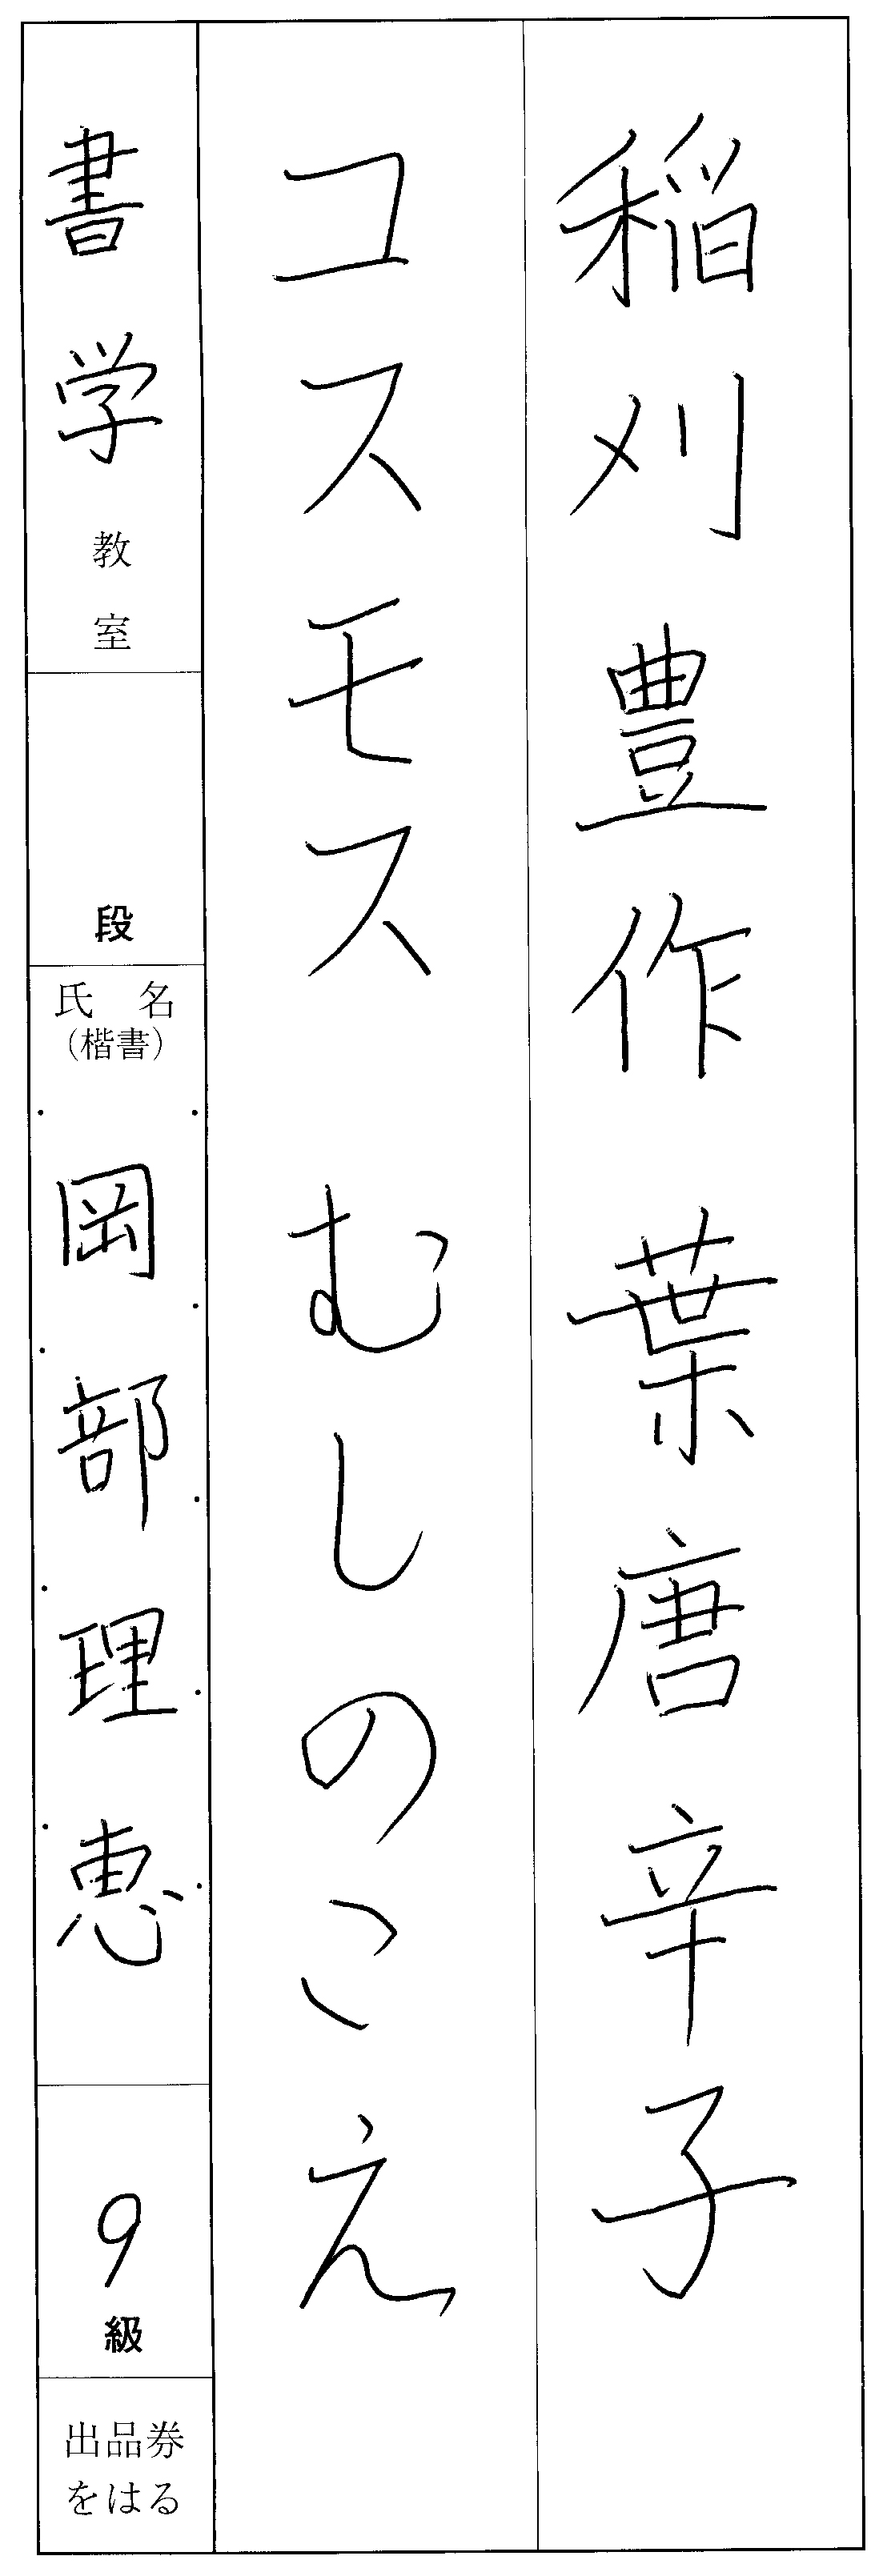 稲刈豊作葉唐辛子
コスモス むしのこえ
書学教室
段
氏名
(楷書)
岡部理恵
9級
出品券
をはる